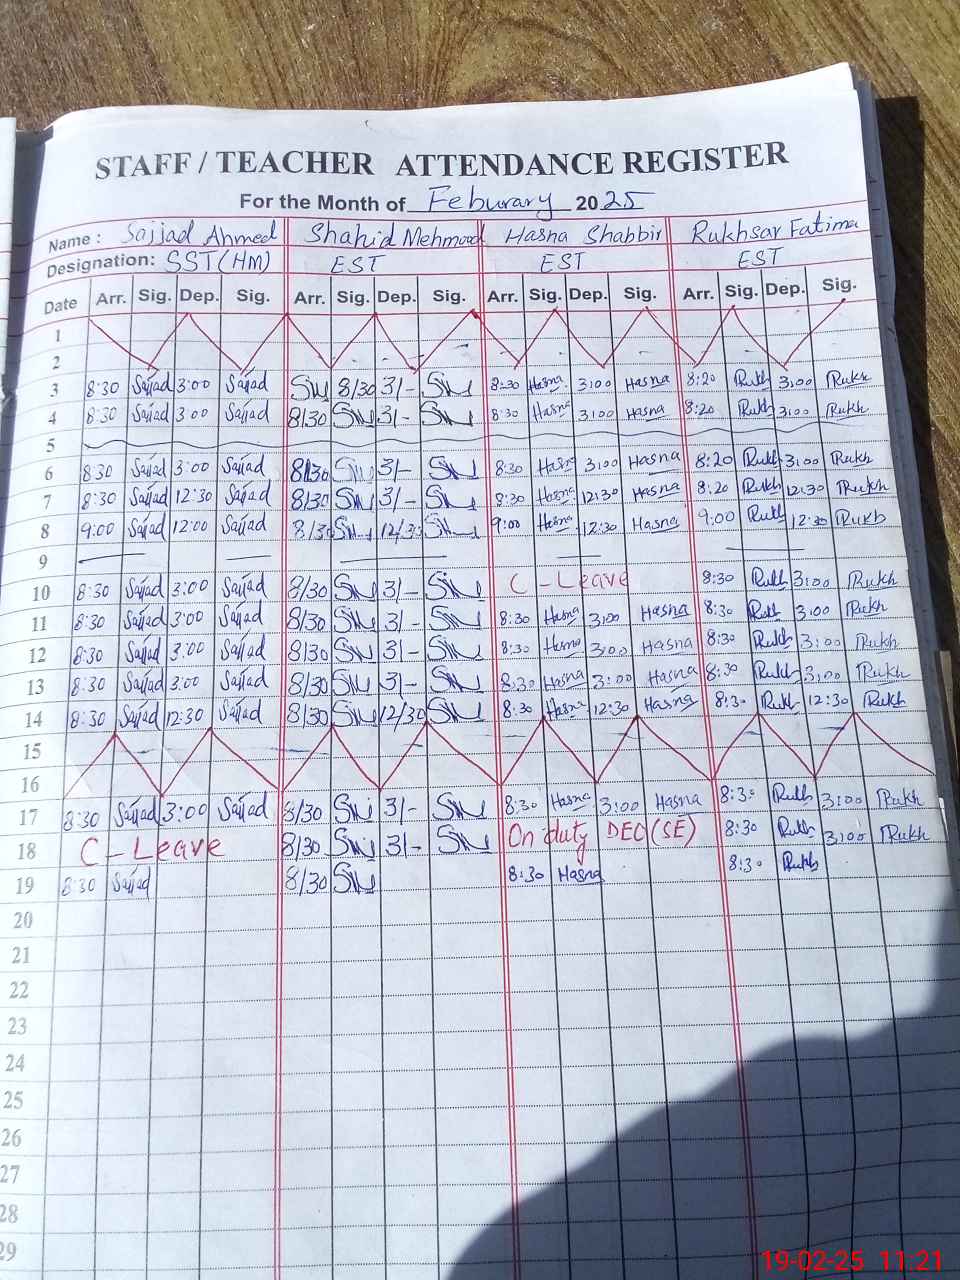 STAFF / TEACHER ATTENDANCE REGISTER
For the Month of Feburary 2025
Name : Sajjad Ahmed Shahid Mehmood Hasna Shabbir Rukhsar Fatima
Designation: SST(HM) EST EST EST
Date Arr. Sig. Dep. Sig. Arr. Sig. Dep. Sig. Arr. Sig. Dep. Sig. Arr. Sig. Dep. Sig.
1
2
3 8:30 Sajjad 3:00 Sajjad 8/30 3/- 8:30 Hasna 3:00 Hasna 8:20 Rukh 3:00 Rukh
4 8:30 Sajjad 3:00 Sajjad 8/30 3/- 8:30 Hasna 3:00 Hasna 8:20 Rukh 3:00 Rukh
5
6 8:30 Sajjad 3:00 Sajjad 8/30 3/- 8:30 Hasna 3:00 Hasna 8:20 Rukh 3:00 Rukh
7 8:30 Sajjad 12:30 Sajjad 8/30 3/- 8:30 Hasna 12:30 Hasna 8:20 Rukh 12:30 Rukh
8 9:00 Sajjad 12:00 Sajjad 8/30 12/30 9:00 Hasna 12:30 Hasna 9:00 Rukh 12:30 Rukh
9
10 8:30 Sajjad 3:00 Sajjad 8/30 3/- C - Leave 8:30 Rukh 3:00 Rukh
11 8:30 Sajjad 3:00 Sajjad 8/30 3/- 8:30 Hasna 3:00 Hasna 8:30 Rukh 3:00 Rukh
12 8:30 Sajjad 3:00 Sajjad 8/30 3/- 8:30 Hasna 3:00 Hasna 8:30 Rukh 3:00 Rukh
13 8:30 Sajjad 3:00 Sajjad 8/30 3/- 8:30 Hasna 3:00 Hasna 8:30 Rukh 3:00 Rukh
14 8:30 Sajjad 12:30 Sajjad 8/30 12/30 8:30 Hasna 12:30 Hasna 8:30 Rukh 12:30 Rukh
15
16
17 8:30 Sajjad 3:00 Sajjad 8/30 3/- 8:30 Hasna 3:00 Hasna 8:30 Rukh 3:00 Rukh
18 C - Leave 8/30 3/- On duty DEO (SE) 8:30 Rukh 3:00 Rukh
19 8:30 Sajjad 8/30 8:30 Hasna 8:30 Rukh
20
21
22
23
24
25
26
27
28
29
19-02-25 11:21